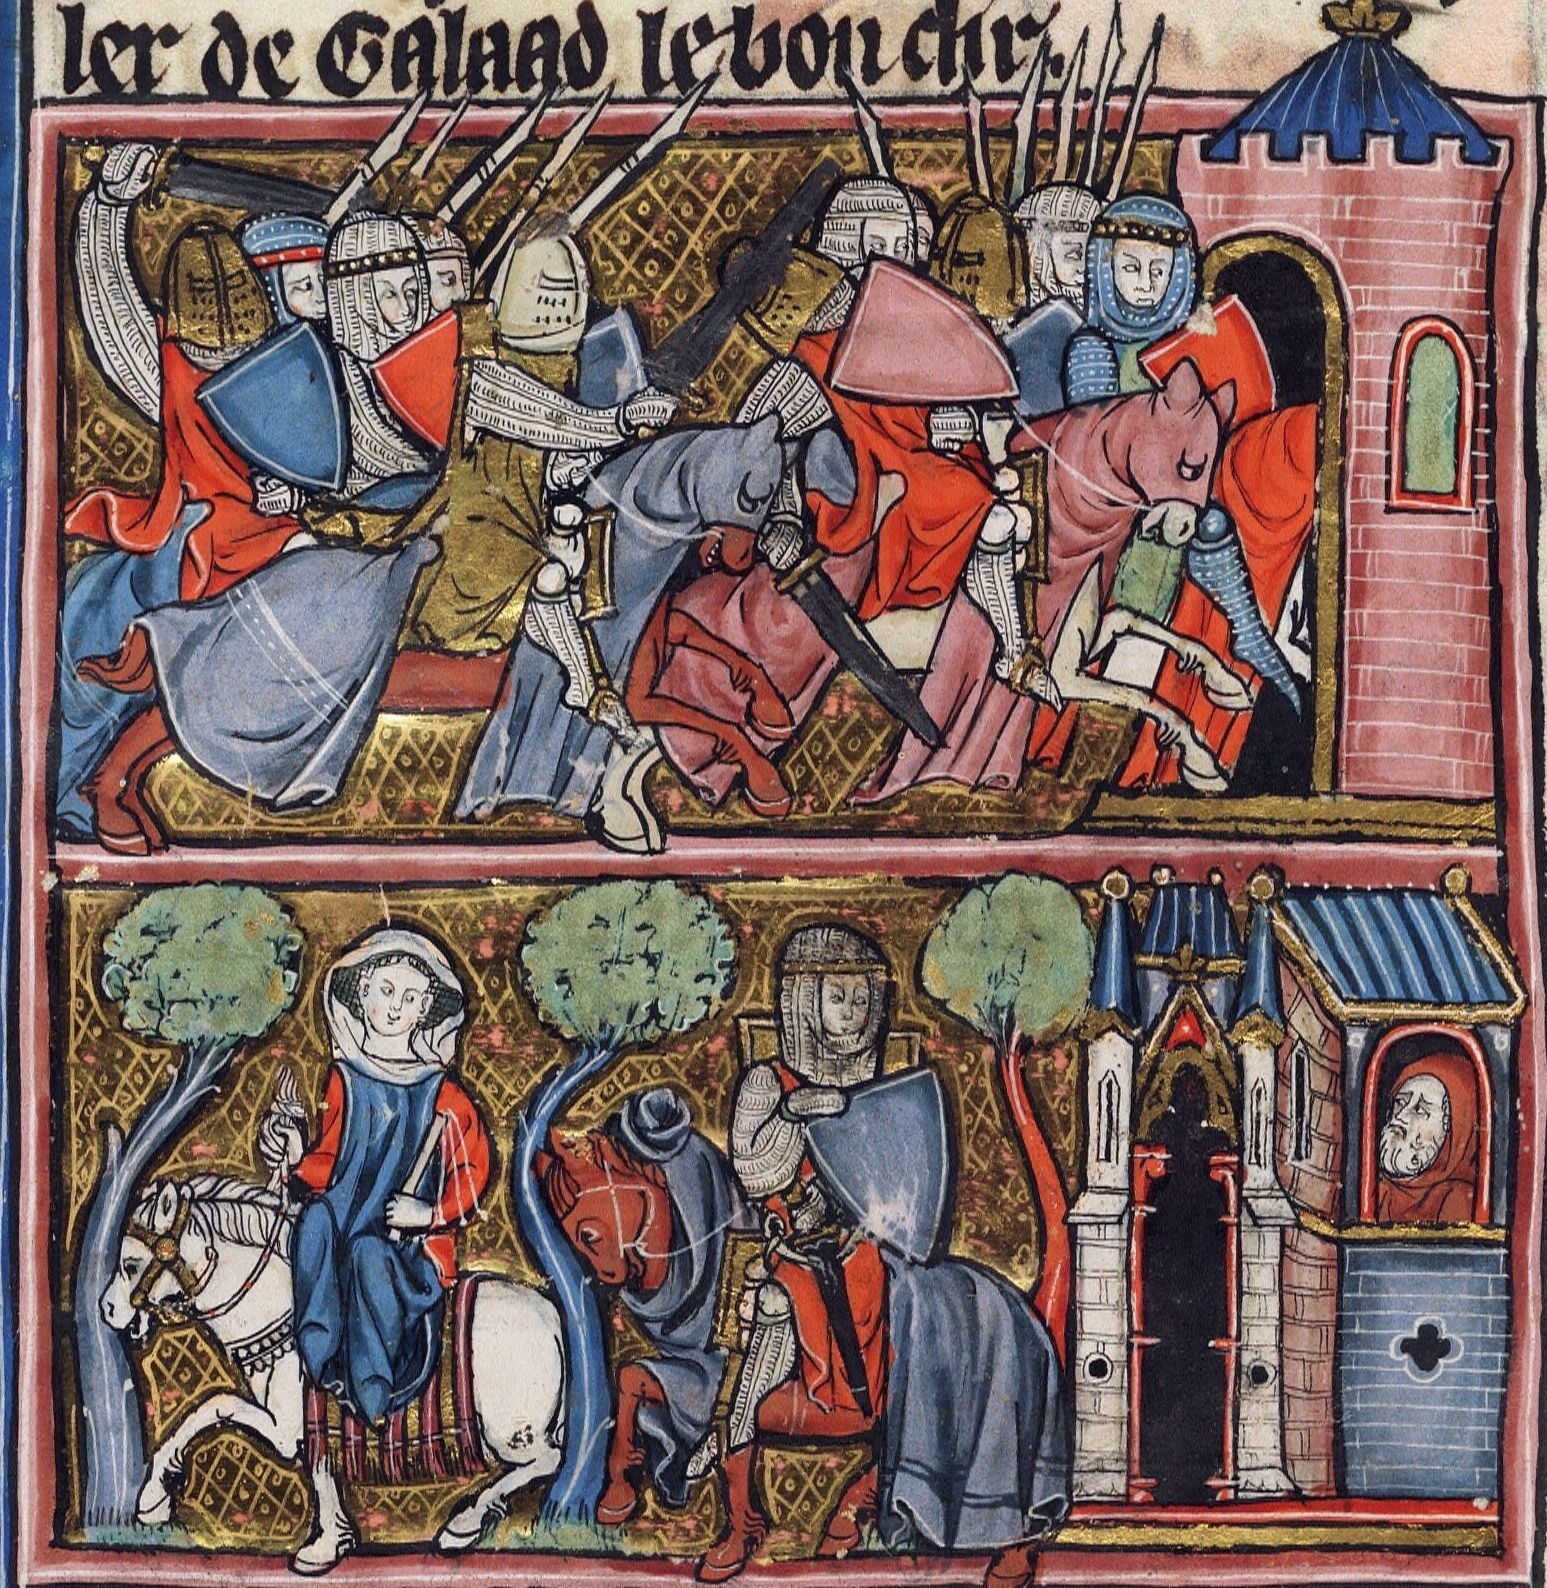 ler de Galaad le bon chr.